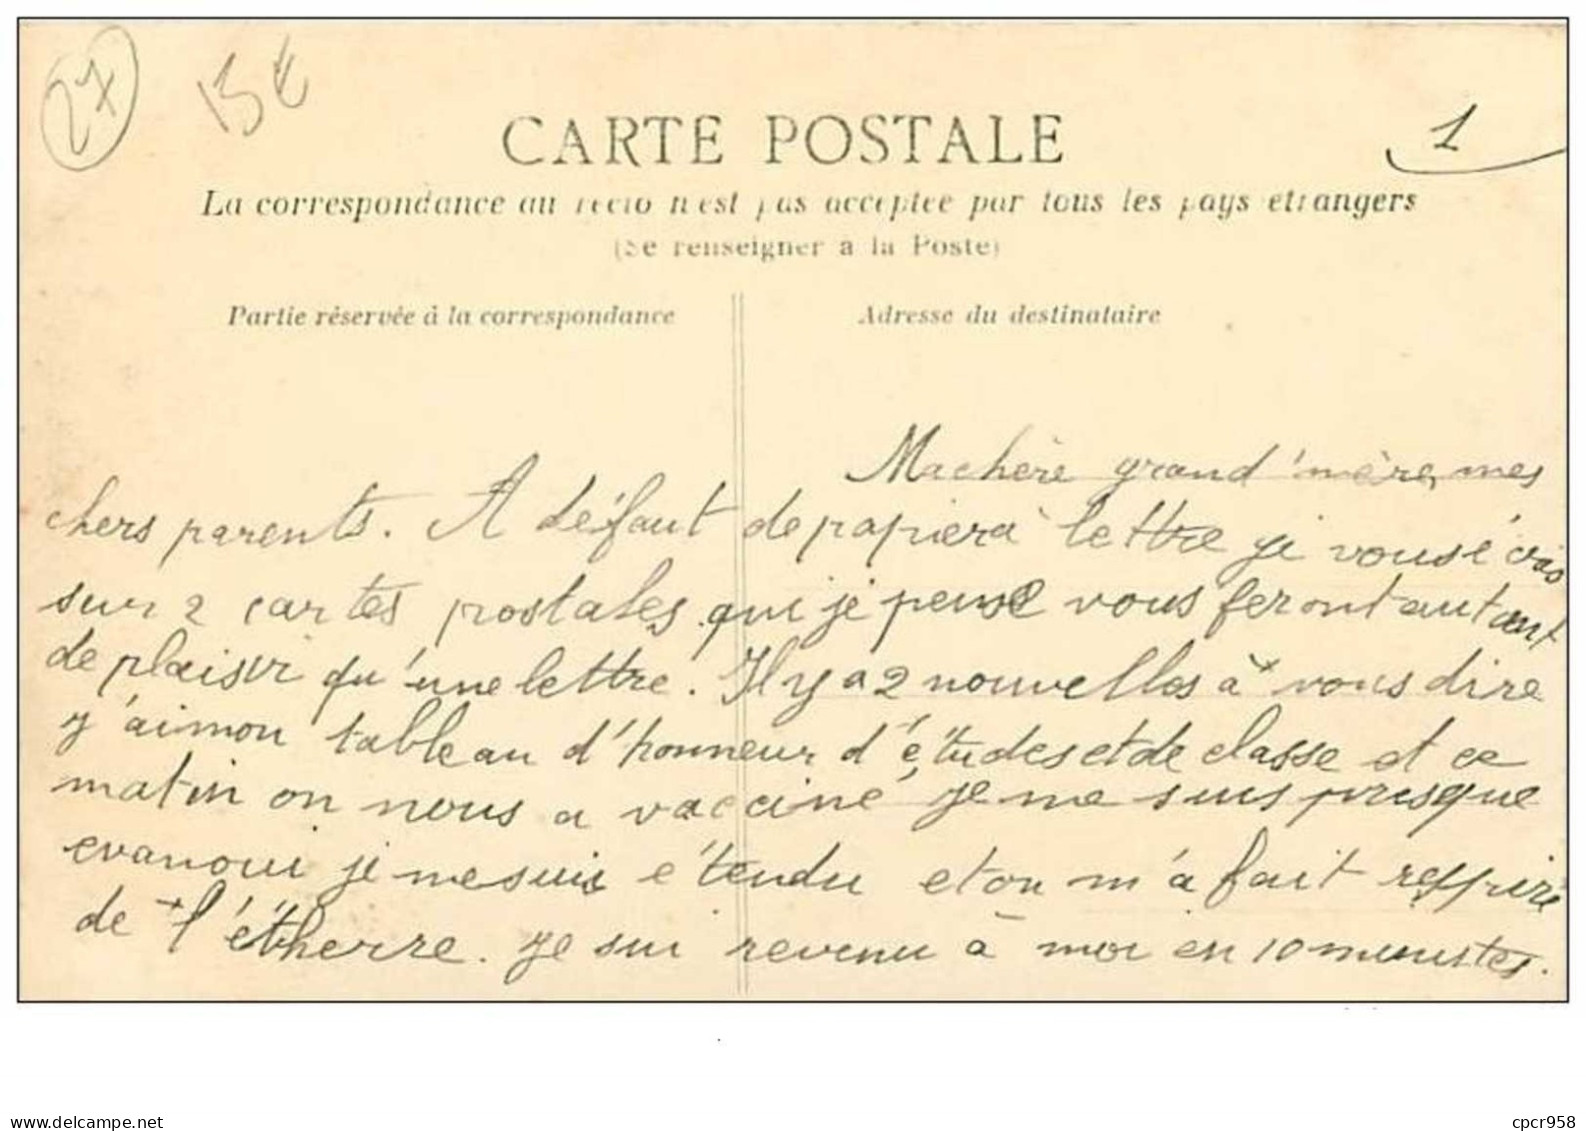 27
15€
1
CARTE POSTALE
La correspondance au recto n'est pas acceptée par tous les pays étrangers
(Se renseigner à la Poste)
Partie réservée à la correspondance
Adresse du destinataire
Machère grand'mère, mes
chers parents. A défaut de papier à lettre je vous écris
sur 2 cartes postales qui je pense vous feront autant
de plaisir qu'une lettre. Il y a 2 nouvelles à vous dire
j'ai mon tableau d'honneur d'études et de classe et ce
matin on nous a vacciné je me suis presque
evanoui je me suis étendu et on m'a fait respirer
de l'étherre. je sui revenu à moi en 10 minutes.
www.delcampe.net
cpcr958